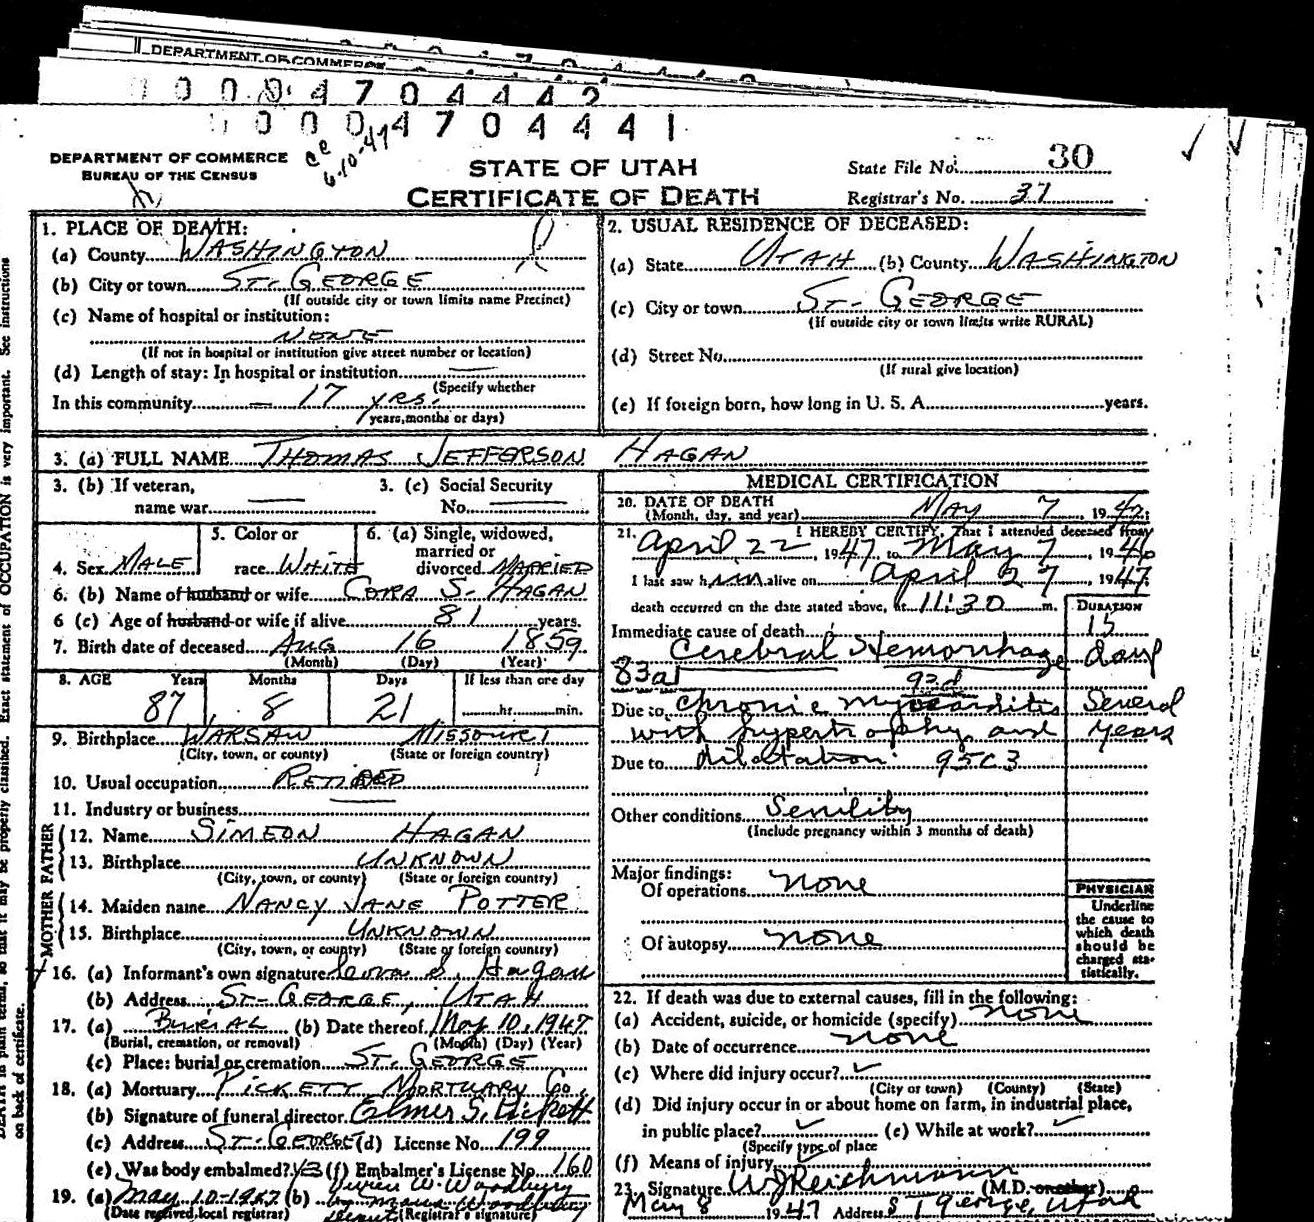 DEPARTMENT OF COMMERCE
0 0 0 0 4 7 0 4 4 4 2
0 0 0 0 4 7 0 4 4 4 1
cc
6-10-47
DEPARTMENT OF COMMERCE
BUREAU OF THE CENSUS
STATE OF UTAH
CERTIFICATE OF DEATH
State File No. 30
Registrar's No. 37
1. PLACE OF DEATH:
(a) County WASHINGTON
(b) City or town ST. GEORGE
(If outside city or town limits name Precinct)
(c) Name of hospital or institution:
NONE
(If not in hospital or institution give street number or location)
(d) Length of stay: In hospital or institution —
(Specify whether
In this community — 17 yrs.
years, months or days)
2. USUAL RESIDENCE OF DECEASED:
(a) State UTAH (b) County WASHINGTON
(c) City or town ST. GEORGE
(If outside city or town limits write RURAL)
(d) Street No.
(If rural give location)
(e) If foreign born, how long in U. S. A. years.
3. (a) FULL NAME THOMAS JEFFERSON HAGAN
3. (b) If veteran,
name war —
3. (c) Social Security
No. —
4. Sex MALE
5. Color or
race WHITE
6. (a) Single, widowed,
married or
divorced MARRIED
6. (b) Name of husband or wife CORA S. HAGAN
6 (c) Age of husband or wife if alive 81 years.
7. Birth date of deceased AUG 16 1859
(Month) (Day) (Year)
8. AGE Years Months Days If less than one day
87 8 21 hr. min.
9. Birthplace WARSAW MISSOURI
(City, town, or county) (State or foreign country)
10. Usual occupation RETIRED
11. Industry or business
FATHER
12. Name SIMEON HAGAN
13. Birthplace UNKNOWN
(City, town, or county) (State or foreign country)
MOTHER
14. Maiden name NANCY JANE POTTER
15. Birthplace UNKNOWN
(City, town, or county) (State or foreign country)
16. (a) Informant's own signature Cora S. Hagan
(b) Address ST. GEORGE, UTAH
17. (a) BURIAL (b) Date thereof May 10, 1947
(Burial, cremation, or removal) (Month) (Day) (Year)
(c) Place: burial or cremation ST. GEORGE
18. (a) Mortuary PICKETT MORTUARY CO.
(b) Signature of funeral director Elmer S. Pickett
(c) Address ST. GEORGE (d) License No. 199
(e) Was body embalmed? (f) Embalmer's License No. 160
19. (a) May 10-1947 (b) Owen W. Woodbury
(Date received local registrar) (Registrar's signature)
MEDICAL CERTIFICATION
20. DATE OF DEATH
(Month, day, and year) MAY 7, 1947
21. I HEREBY CERTIFY, That I attended deceased from
April 22, 1947, to May 7, 1946
I last saw him alive on April 27, 1947
death occurred on the date stated above, at 11:30 m.
DURATION
Immediate cause of death 15
Cerebral Hemorrhage days
83a1 93d
Due to chronic myocarditis Several
with hypertrophy and years
Due to dilatation 95c3
Other conditions Senility
(Include pregnancy within 3 months of death)
Major findings:
Of operations none
Of autopsy none
PHYSICIAN
Underline
the cause to
which death
should be
charged sta-
tistically.
22. If death was due to external causes, fill in the following:
(a) Accident, suicide, or homicide (specify) none
(b) Date of occurrence none
(c) Where did injury occur? ✓
(City or town) (County) (State)
(d) Did injury occur in or about home on farm, in industrial place,
in public place? ✓ (e) While at work? ✓
(Specify type of place
(f) Means of injury
23. Signature W J Reichmann (M.D. or other)
May 8 1947 Address St George, Utah
on back of certificate.
DEATH in plain terms, so that it may be properly classified. Exact statement of OCCUPATION is very important. See instructions